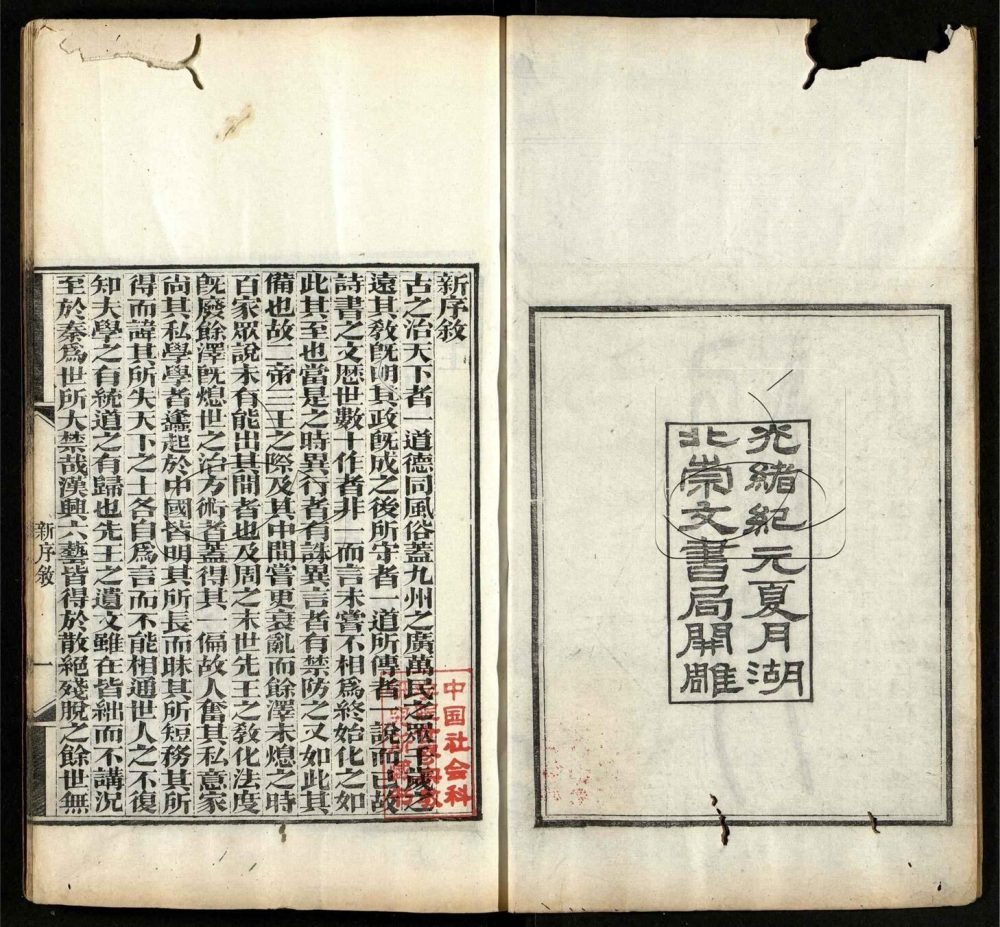 光緒紀元夏月湖
北崇文書局開雕
新序敘
古之治天下者一道德同風俗蓋九州之廣萬民之眾千歲之
遠其敎旣明其政旣成之後所守者一道所傳者一說而已故
詩書之文歷世數十作者非一而言未嘗不相爲終始化之如
此其至也當是之時異行者有誅異言者有禁防之又如此其
備也故二帝三王之際及其中間嘗更衰亂而餘澤未熄之時
百家眾說未有能出其間者也及周之末世先王之敎化法度
旣廢餘澤旣熄世之治方術者蓋得其一偏故人奮其私意家
尚其私學學者蠭起於中國皆明其所長而昧其所短務其所
得而諱其所失天下之士各自爲言而不能相通世人之不復
知大學之有統道之有歸也先王之遺文雖在皆絀而不講況
至於秦爲世所大禁哉漢興六藝皆得於散絕殘脫之餘世無
新序敘
一
中国社会科